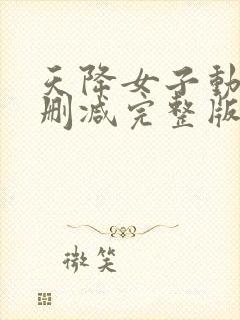 天降女子動
删减完整版
微笑